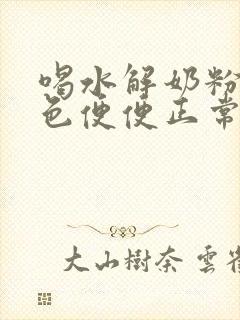 喝水解奶粉
色便便正常
大山樹奈 雲雀